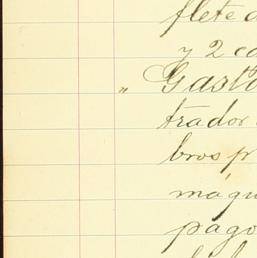 flete d
y 2 ca
„ Gasto
trador
bros p
máqu
pago